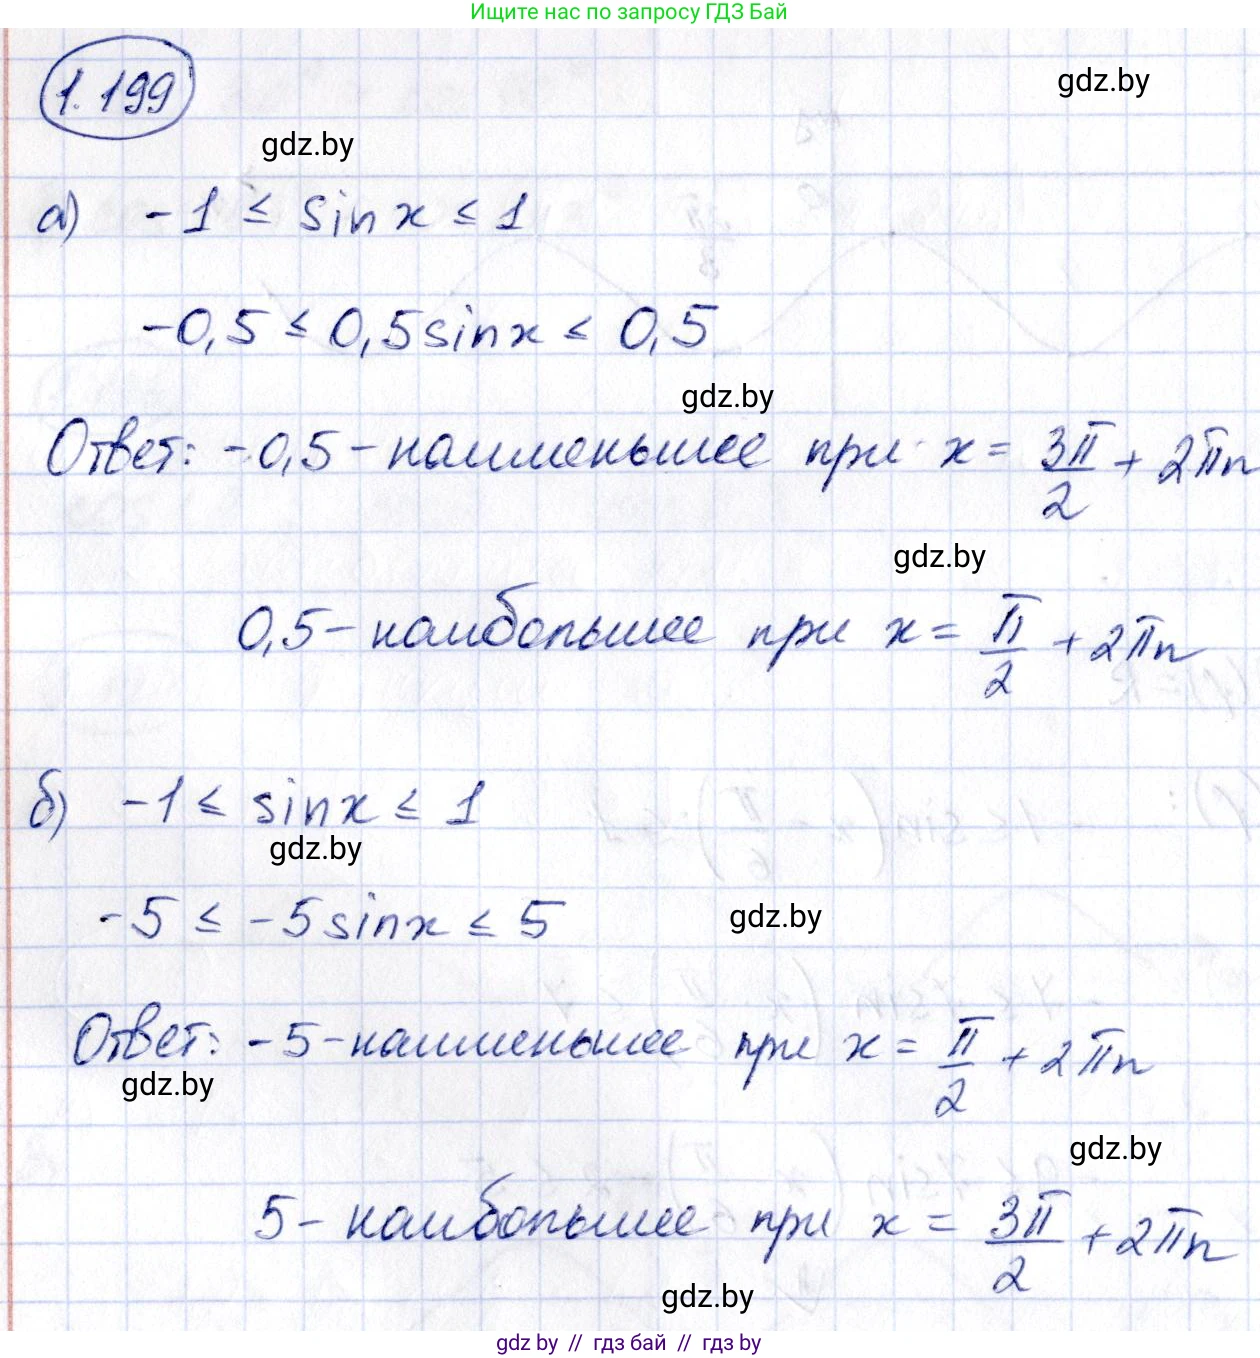 Ищите нас по запросу ГДЗ Бай
1.199
gdz.by
gdz.by
а) -1 ≤ sin x ≤ 1
-0,5 ≤ 0,5 sin x ≤ 0,5
gdz.by
Ответ: -0,5 - наименьшее при x = 3π/2 + 2πn
gdz.by
0,5 - наибольшее при x = π/2 + 2πn
б) -1 ≤ sin x ≤ 1
gdz.by
-5 ≤ -5 sin x ≤ 5
gdz.by
Ответ: -5 - наименьшее при x = π/2 + 2πn
gdz.by
gdz.by
5 - наибольшее при x = 3π/2 + 2πn
gdz.by
gdz.by // гдз бай // гдз by